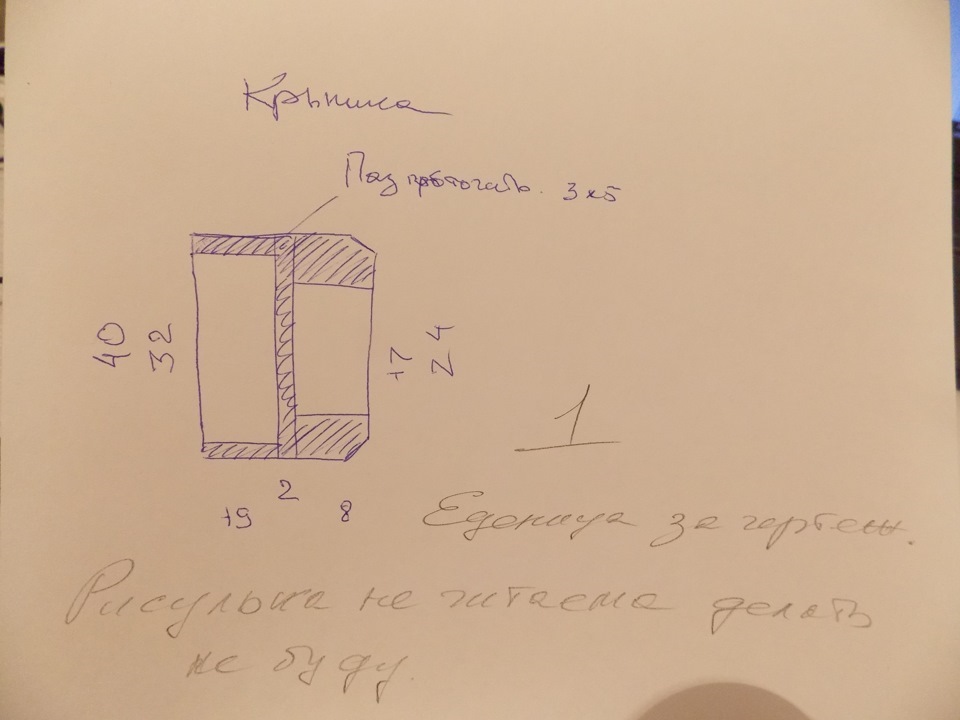 Крышка
Паз проточить. 3х5
40
32
17
24
2
19
8
1
Еденица за чертеж.
Рисулька не читаема делать
не буду.